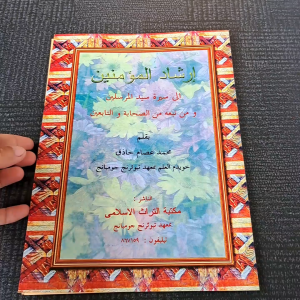 إرشاد المؤمنين
إلى سيرة سيد المرسلين
و من تبعه من الصحابة و التابعين
بقلم
محمد عصام حاذق
خويدم العلم بمعهد تبوئرنج جومبانج
الناشر :
مكتبة التراث الاسلامى
بمعهد تبوئرنج جومبانج
تيليفون :